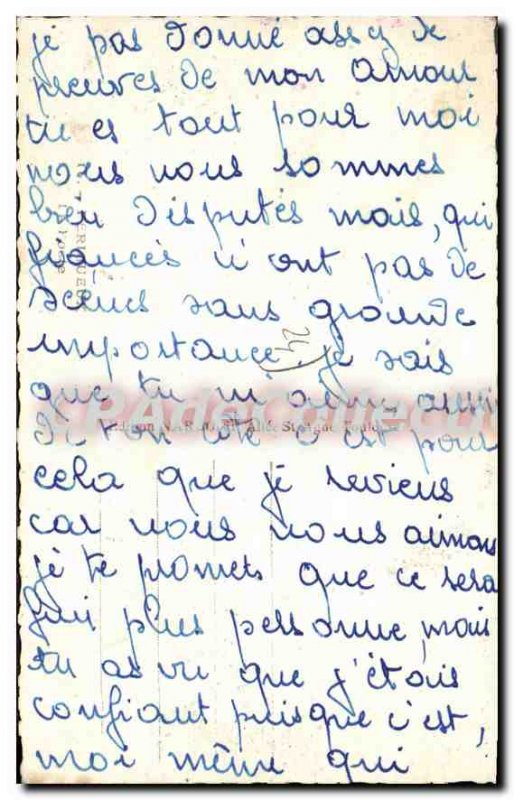 je pas donné assez de
preuves de mon amour
tu es tout pour moi
nous nous sommes
bien disputés mais, qui
fiancés n'ont pas de
scènes sans grande
importance je sais
24
que tu m'aimes aussi
CPAdeCollection
de ton côté c'est pour
cela que je reviens
car nous nous aimons
je te promets que ce sera
fini plus personne, mais
tu as vu que j'étais
confiant puisque c'est,
moi même qui